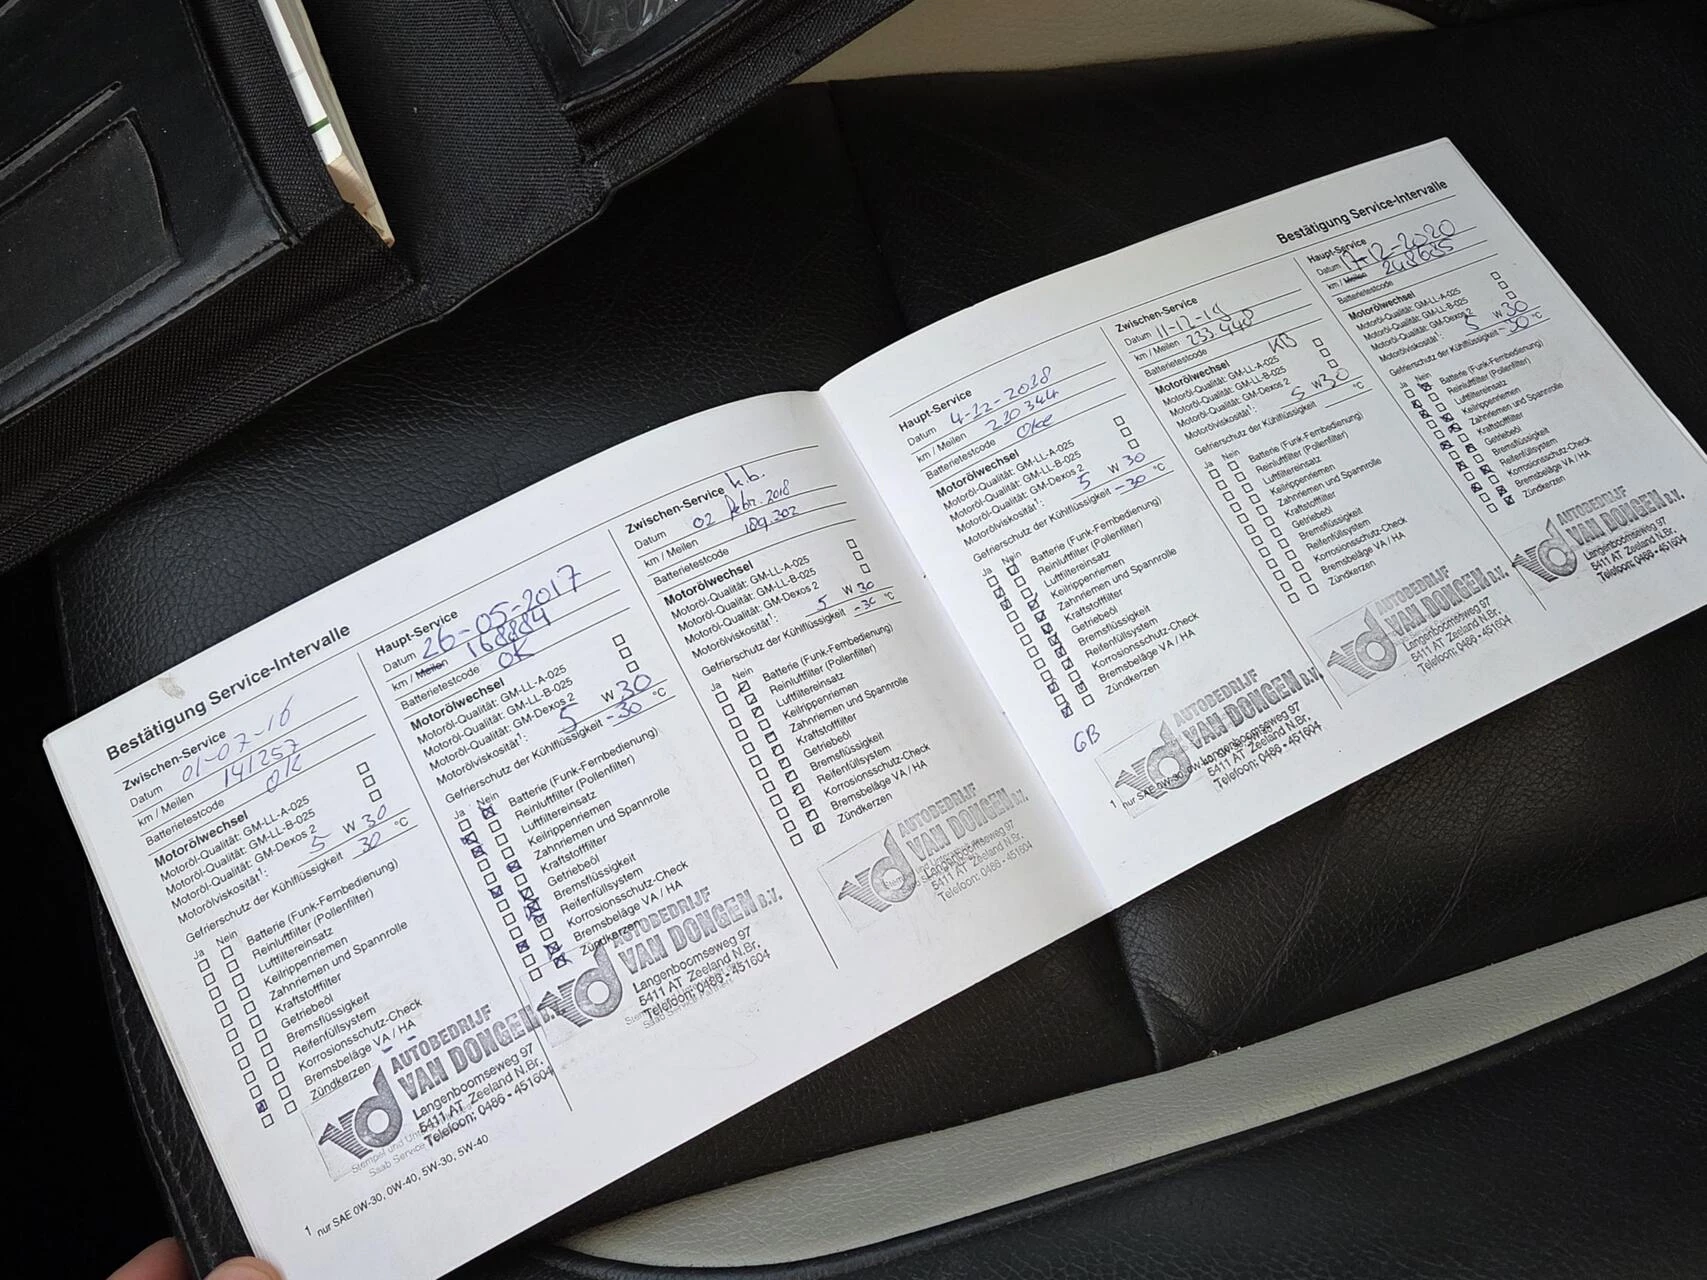 Bestätigung Service-Intervalle
Zwischen-Service
Datum 01-07-16
km / Meilen 141257
Batterietestcode OK
Motorölwechsel
Motoröl-Qualität: GM-LL-A-025
Motoröl-Qualität: GM-LL-B-025
Motoröl-Qualität: GM-Dexos 2
Motorölviskosität¹: 5 W 30
Gefrierschutz der Kühlflüssigkeit 30 °C
Ja Nein
Batterie (Funk-Fernbedienung)
Reinluftfilter (Pollenfilter)
Luftfiltereinsatz
Keilrippenriemen
Zahnriemen und Spannrolle
Kraftstofffilter
Getriebeöl
Bremsflüssigkeit
Reifenfüllsystem
Korrosionsschutz-Check
Bremsbeläge VA / HA
Zündkerzen
AUTOBEDRIJF
VAN DONGEN B.V.
Langenboomseweg 97
5411 AT Zeeland N.Br.
Telefoon: 0486 - 451604
1 nur SAE 0W-30, 0W-40, 5W-30, 5W-40
Haupt-Service
Datum 26-05-2017
km / Meilen 168884
Batterietestcode OK
Motorölwechsel
Motoröl-Qualität: GM-LL-A-025
Motoröl-Qualität: GM-LL-B-025
Motoröl-Qualität: GM-Dexos 2
Motorölviskosität¹: 5 W 30
Gefrierschutz der Kühlflüssigkeit -30 °C
Ja Nein
Batterie (Funk-Fernbedienung)
Reinluftfilter (Pollenfilter)
Luftfiltereinsatz
Keilrippenriemen
Zahnriemen und Spannrolle
Kraftstofffilter
Getriebeöl
Bremsflüssigkeit
Reifenfüllsystem
Korrosionsschutz-Check
Bremsbeläge VA / HA
Zündkerzen
AUTOBEDRIJF
VAN DONGEN B.V.
Langenboomseweg 97
5411 AT Zeeland N.Br.
Telefoon: 0486 - 451604
Zwischen-Service k.b.
Datum 02 febr. 2018
km / Meilen 189.302
Batterietestcode
Motorölwechsel
Motoröl-Qualität: GM-LL-A-025
Motoröl-Qualität: GM-LL-B-025
Motoröl-Qualität: GM-Dexos 2
Motorölviskosität¹: 5 W 30
Gefrierschutz der Kühlflüssigkeit -30 °C
Ja Nein
Batterie (Funk-Fernbedienung)
Reinluftfilter (Pollenfilter)
Luftfiltereinsatz
Keilrippenriemen
Zahnriemen und Spannrolle
Kraftstofffilter
Getriebeöl
Bremsflüssigkeit
Reifenfüllsystem
Korrosionsschutz-Check
Bremsbeläge VA / HA
Zündkerzen
AUTOBEDRIJF
VAN DONGEN B.V.
Langenboomseweg 97
5411 AT Zeeland N.Br.
Telefoon: 0486 - 451604
Bestätigung Service-Intervalle
Haupt-Service
Datum 4-12-2018
km / Meilen 220344
Batterietestcode Oke
Motorölwechsel
Motoröl-Qualität: GM-LL-A-025
Motoröl-Qualität: GM-LL-B-025
Motoröl-Qualität: GM-Dexos 2
Motorölviskosität¹: 5 W 30
Gefrierschutz der Kühlflüssigkeit -30 °C
Ja Nein
Batterie (Funk-Fernbedienung)
Reinluftfilter (Pollenfilter)
Luftfiltereinsatz
Keilrippenriemen
Zahnriemen und Spannrolle
Kraftstofffilter
Getriebeöl
Bremsflüssigkeit
Reifenfüllsystem
Korrosionsschutz-Check
Bremsbeläge VA / HA
Zündkerzen
GB
AUTOBEDRIJF
VAN DONGEN B.V.
Langenboomseweg 97
5411 AT Zeeland N.Br.
Telefoon: 0486 - 451604
1 nur SAE
Zwischen-Service
Datum 11-12-19
km / Meilen 233.448
Batterietestcode
Motorölwechsel KB
Motoröl-Qualität: GM-LL-A-025
Motoröl-Qualität: GM-LL-B-025
Motoröl-Qualität: GM-Dexos 2
Motorölviskosität¹: 5 W 30
Gefrierschutz der Kühlflüssigkeit °C
Ja Nein
Batterie (Funk-Fernbedienung)
Reinluftfilter (Pollenfilter)
Luftfiltereinsatz
Keilrippenriemen
Zahnriemen und Spannrolle
Kraftstofffilter
Getriebeöl
Bremsflüssigkeit
Reifenfüllsystem
Korrosionsschutz-Check
Bremsbeläge VA / HA
Zündkerzen
AUTOBEDRIJF
VAN DONGEN B.V.
Langenboomseweg 97
5411 AT Zeeland N.Br.
Telefoon: 0486 - 451604
Haupt-Service
Datum 17-12-2020
km / Meilen 248635
Batterietestcode
Motorölwechsel
Motoröl-Qualität: GM-LL-A-025
Motoröl-Qualität: GM-LL-B-025
Motoröl-Qualität: GM-Dexos 2
Motorölviskosität¹: 5 W 30
Gefrierschutz der Kühlflüssigkeit -30 °C
Ja Nein
Batterie (Funk-Fernbedienung)
Reinluftfilter (Pollenfilter)
Luftfiltereinsatz
Keilrippenriemen
Zahnriemen und Spannrolle
Kraftstofffilter
Getriebeöl
Bremsflüssigkeit
Reifenfüllsystem
Korrosionsschutz-Check
Bremsbeläge VA / HA
Zündkerzen
AUTOBEDRIJF
VAN DONGEN B.V.
Langenboomseweg 97
5411 AT Zeeland N.Br.
Telefoon: 0486 - 451604